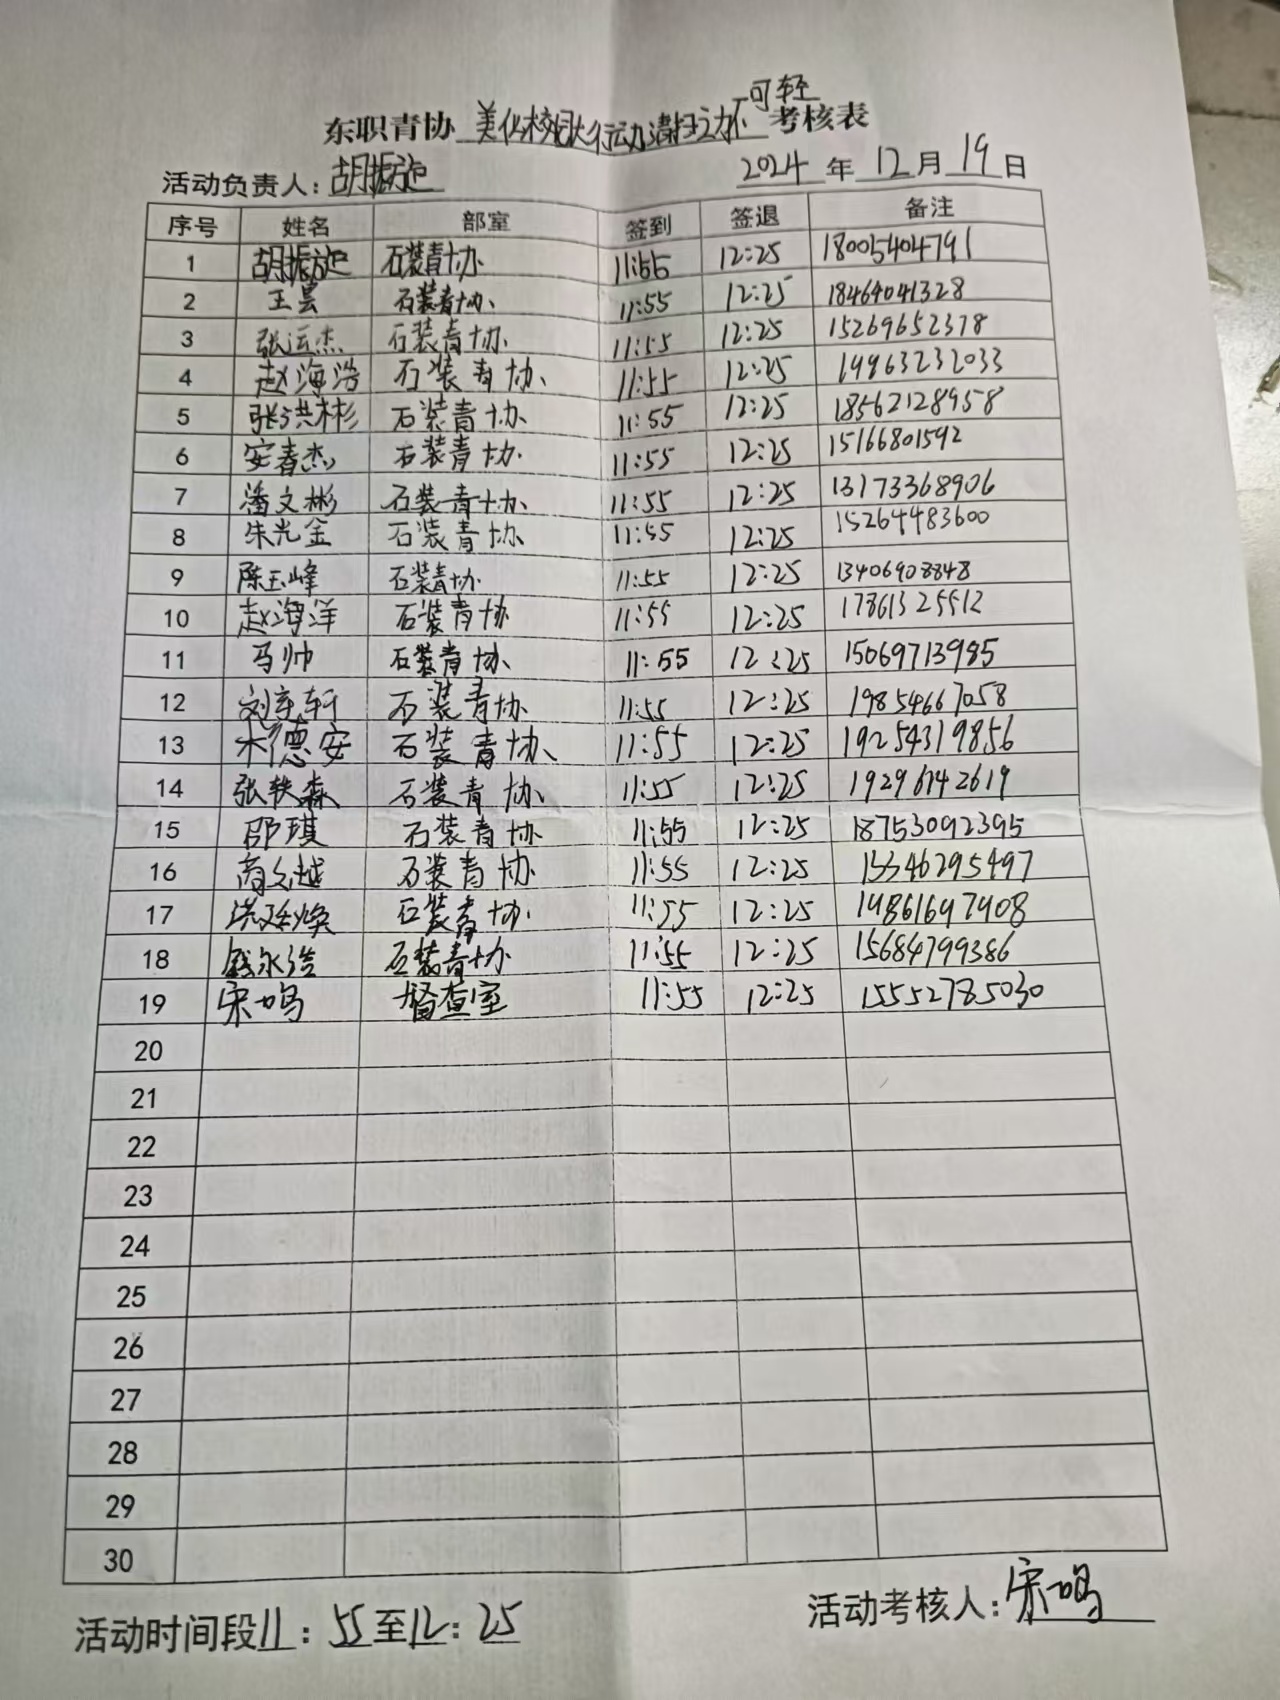 东职青协 美化校园大行动清扫之力不可轻 考核表
活动负责人：胡振旋 2024 年 12 月 19 日
序号 姓名 部室 签到 签退 备注
1 胡振旋 石装青协 11:55 12:25 18005404791
2 王昙 石装青协 11:55 12:25 18464041328
3 张运杰 石装青协 11:55 12:25 15269652378
4 赵海浩 石装青协 11:55 12:25 19963232033
5 张洪彬 石装青协 11:55 12:25 18562128958
6 安春杰 石装青协 11:55 12:25 15166801592
7 潘文彬 石装青协 11:55 12:25 13173368906
8 朱光金 石装青协 11:55 12:25 15264483600
9 陈玉峰 石装青协 11:55 12:25 13406908848
10 赵海洋 石装青协 11:55 12:25 17861325512
11 马帅 石装青协 11:55 12:25 15069713985
12 石装青协 11:55 12:25 19854667058
13 德安 石装青协 11:55 12:25 19254319856
14 张轶森 石装青协 11:55 12:25 19296142619
15 邵琪 石装青协 11:55 12:25 18753092395
16 商文越 石装青协 11:55 12:25 13346295497
17 石装青协 11:55 12:25 19861697908
18 石装青协 11:55 12:25 15684799386
19 宋一鸣 督查室 11:55 12:25 15552785030
20
21
22
23
24
25
26
27
28
29
30
活动时间段11：55至12：25 活动考核人：宋一鸣